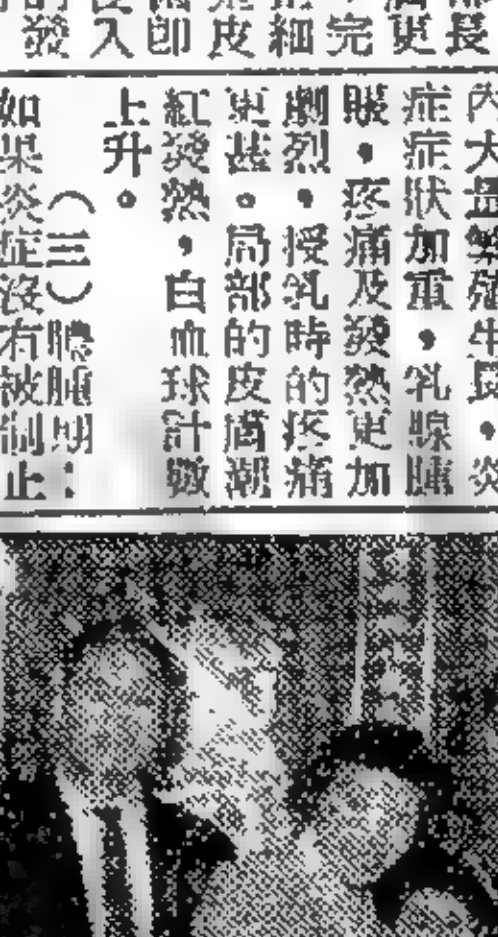 長
更
完
細
皮
即
入
發
內大量繁殖生長，炎
症症狀加重，乳腺腫
脹，疼痛及發熱更加
劇烈，授乳時的疼痛
更甚。局部的皮膚潮
紅發熱，白血球計數
上升。
（三）膿腫期：
如果炎症沒有被制止